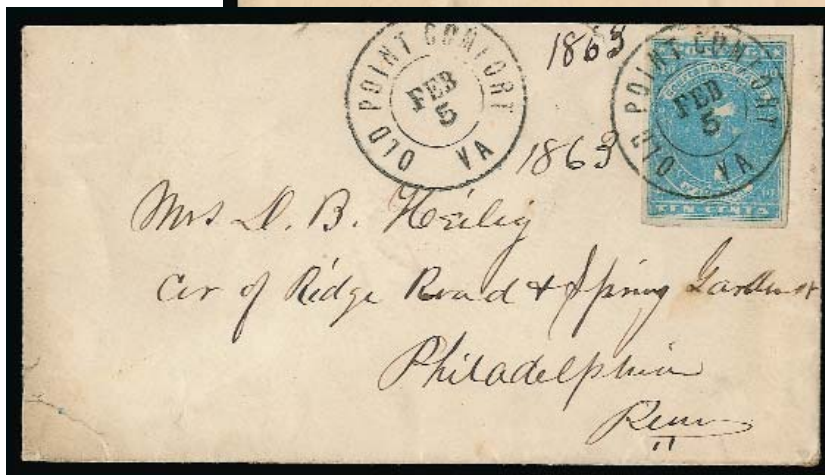 OLD POINT COMFORT
FEB
5
VA
1863
OLD POINT COMFORT
FEB
5
VA
1863
TEN CENTS
Mrs D. B. Heilig
Cor of Ridge Road & Spring Garden st
Philadelphia
Penn